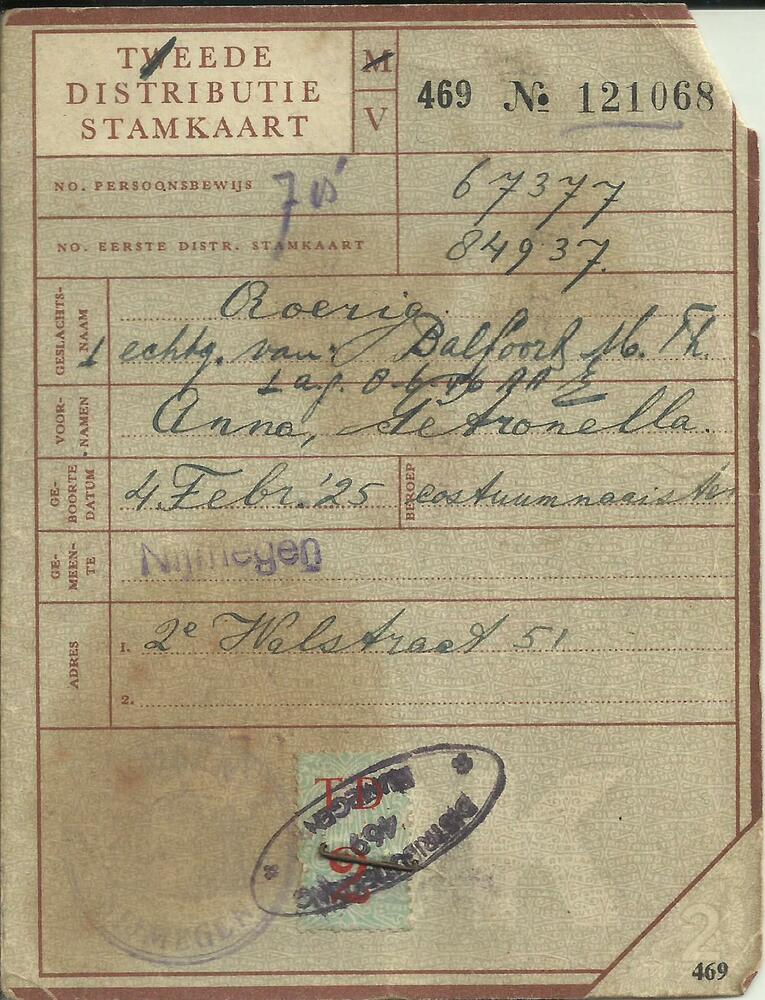 TWEEDE
DISTRIBUTIE
STAMKAART
M
V
469 No 121068
NO. PERSOONSBEWIJS
67377
NO. EERSTE DISTR. STAMKAART
84937.
GESLACHTS-
NAAM
Roerig.
echtg. van Balfoort M. Th.
VOOR-
NAMEN
Anna, Petronella.
GE-
BOORTE
DATUM
4 Febr. '25
BEROEP
costuumnaaister
GE-
MEEN-
TE
Nijmegen
ADRES
1. 2e Walstraat 51
2.
TD
2
NIJMEGEN
469
NIJMEGEN
2
469